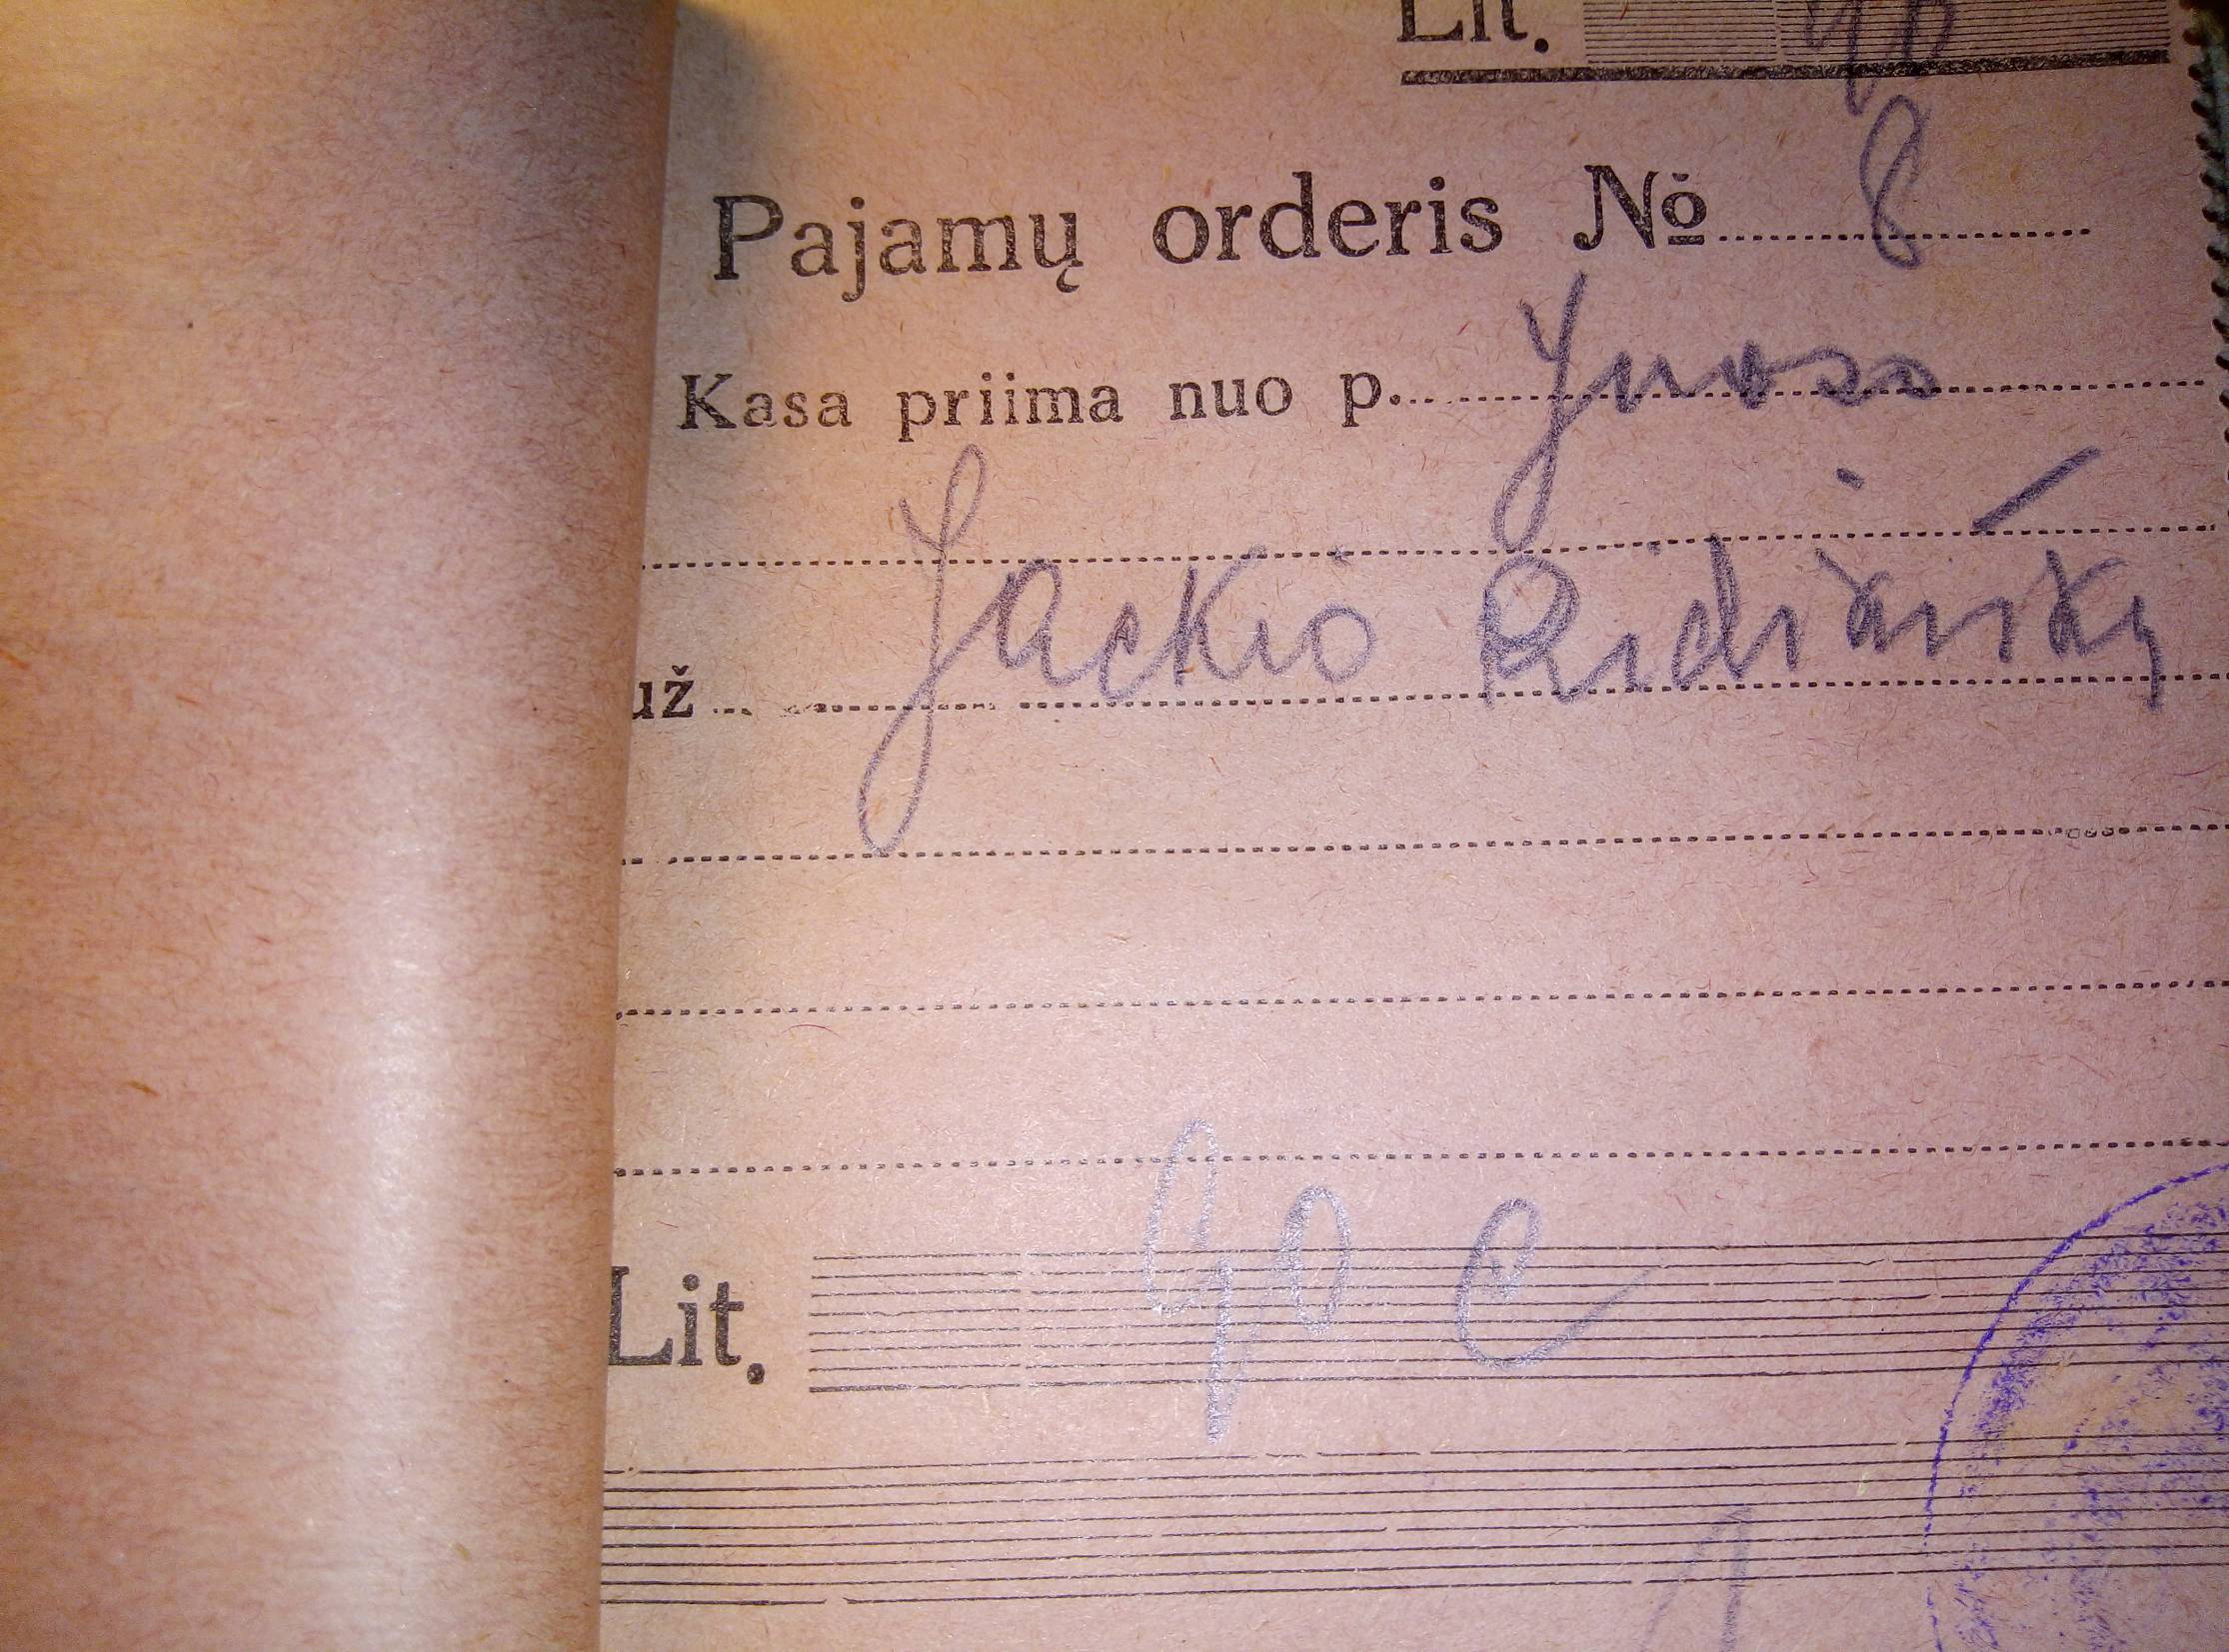 Lit.
Pajamų orderis № 8
Kasa priima nuo p. Juozo
Jackio
už
Lit. 90 c